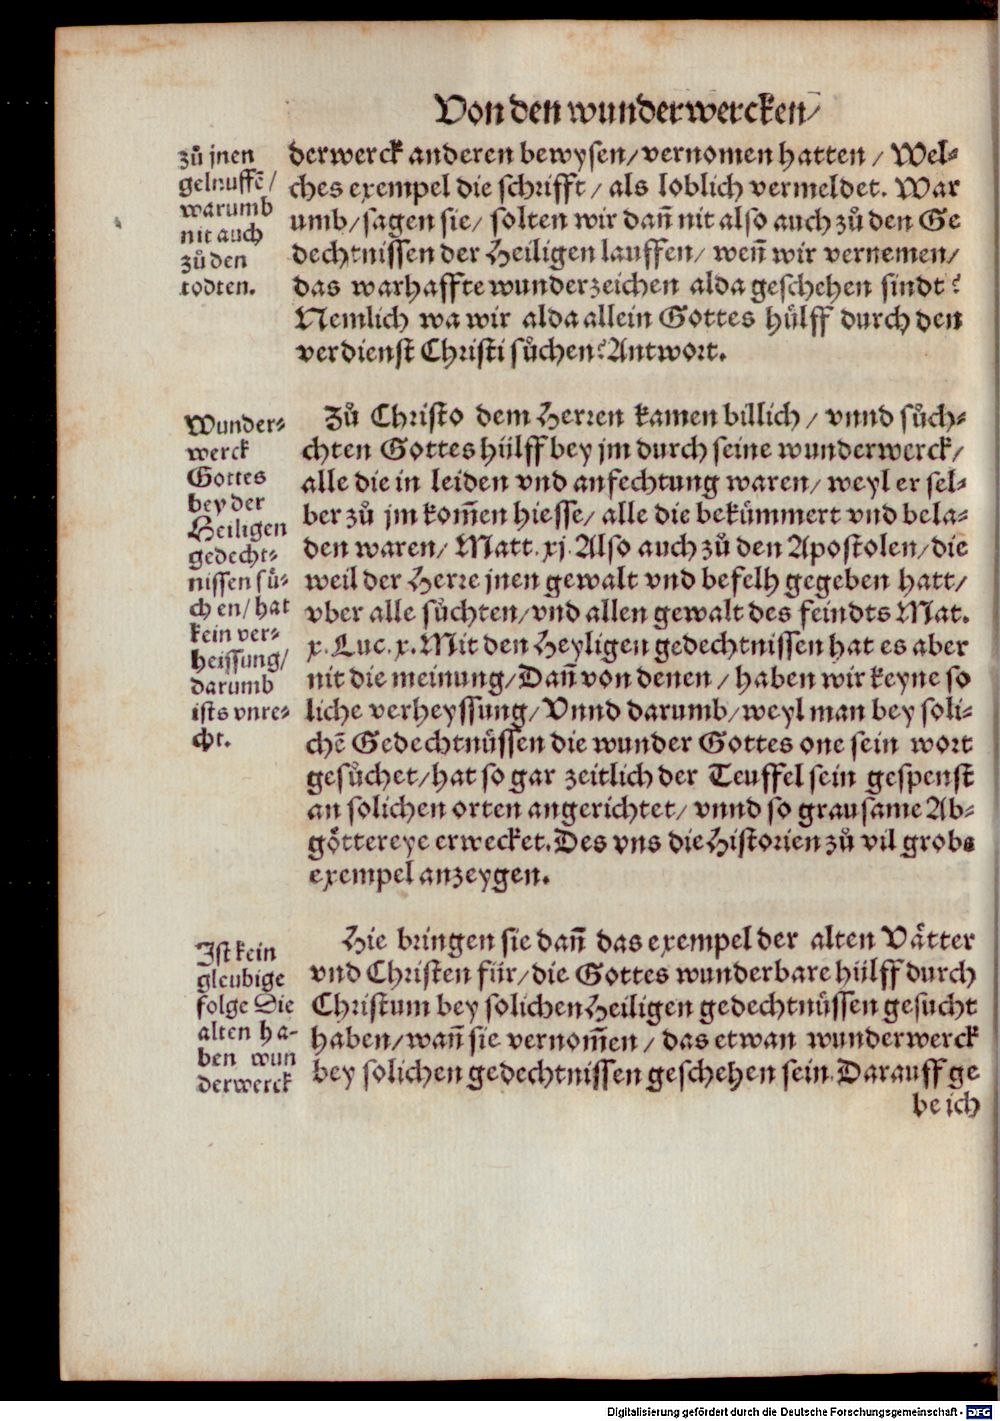 Von den wunderwercken/
zů jnen
geluuffẽ/
warumb
nit auch
zů den
todten.
derwerck anderen bewysen/vernomen hatten / Wel-
ches exempel die schrifft/ als loblich vermeldet. War
umb/sagen sie/ solten wir dañ nit also auch zů den Ge
dechtnissen der Heiligen lauffen/ weñ wir vernemen/
das warhaffte wunderzeichen alda geschehen sindt?
Nemlich wa wir alda allein Gottes hülff durch den
verdienst Christi sůchen? Antwort.
Wunder-
werck
Gottes
bey der
Heiligen
gedecht-
nissen sů-
chen/ hat
kein ver-
heissung/
darumb
ists vnre-
cht.
Zů Christo dem Herren kamen billich / vnnd sůch-
chten Gottes hülff bey jm durch seine wunderwerck/
alle die in leiden vnd anfechtung waren/ weyl er sel-
ber zů jm kom̃en hiesse/ alle die bekümmert vnd bela-
den waren/ Matt. xj. Also auch zů den Apostolen/die
weil der Herre jnen gewalt vnd befelh gegeben hatt/
vber alle sůchten/vnd allen gewalt des feindts Mat.
x. Luc. x. Mit den Heyligen gedechtnissen hat es aber
nit die meinung/Dañ von denen / haben wir keyne so
liche verheyssung/Vnnd darumb/weyl man bey soli-
chẽ Gedechtnüssen die wunder Gottes one sein wort
gesůchet/hat so gar zeitlich der Teuffel sein gespenst
an solichen orten angerichtet/ vnnd so grausame Ab-
göttereye erwecket. Des vns die Historien zů vil grobe
exempel anzeygen.
Ist kein
gleubige
folge Die
alten ha-
ben wun
derwerck
Hie bringen sie dañ das exempel der alten Vätter
vnd Christen für/die Gottes wunderbare hülff durch
Christum bey solichen Heiligen gedechtnüssen gesucht
haben/wañ sie vernom̃en / das etwan wunderwerck
bey solichen gedechtnissen geschehen sein. Darauff ge
be ich
Digitalisierung gefördert durch die Deutsche Forschungsgemeinschaft - DFG